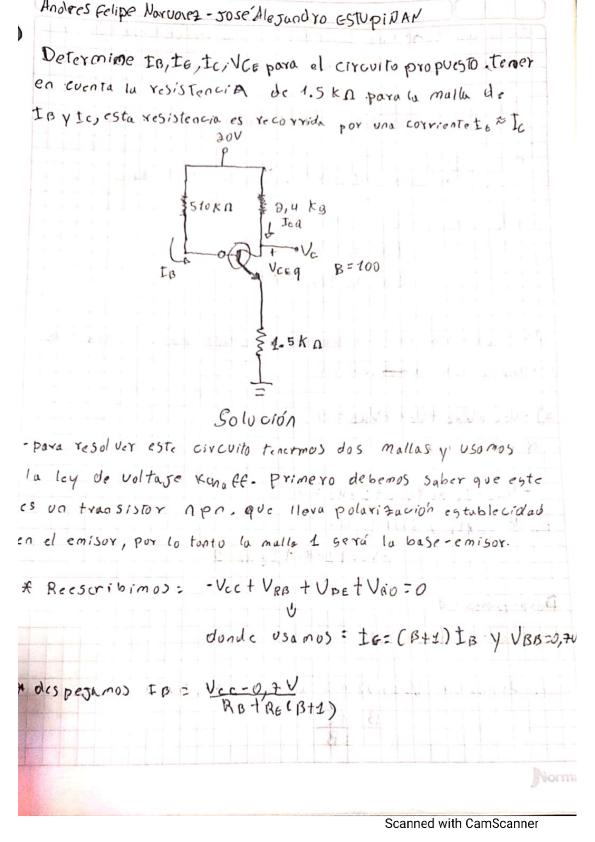 Andres Felipe Narvaez - José Alejandro ESTUPIÑAN
Determime IB, IE, IC, VCE para el circuito propuesto. tener
en cuenta la resistencia de 1.5 kΩ para la malla de
IB y Ic, esta resistencia es recorrida por una corriente Ib ≈ Ic
20V
510KΩ
2,4 kΩ
Icq
Vc
IB
VCEq
B=100
1.5kΩ
Solución
-para resolver este circuito tenemos dos mallas y usamos
la ley de voltaje . Primero debemos saber que este
es un transistor npn. que lleva polarización establecidad
en el emisor, por lo tanto la malla 1 será la base-emisor.
* Reescribimos: -Vcc + VRB + VBE + = 0
⇓
donde usamos: IE=(B+1)IB y VBB=0,7v
* despejamos IB = Vcc-0,7V
RB+RE(B+1)
Norma
Scanned with CamScanner